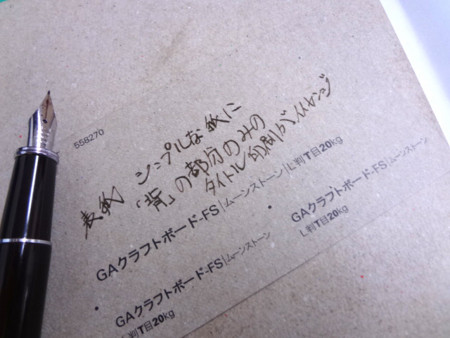 558270
シンプルな紙に
表紙 「背」の部分のみの
タイトル印刷がイイカンジ
GAクラフトボード-FS|ムーンストーン|L判T目20kg
GAクラフトボード-FS|ムーンストーン
L判T目20kg
GAクラフトボード-FS|ムーンストーン
L判T目20kg